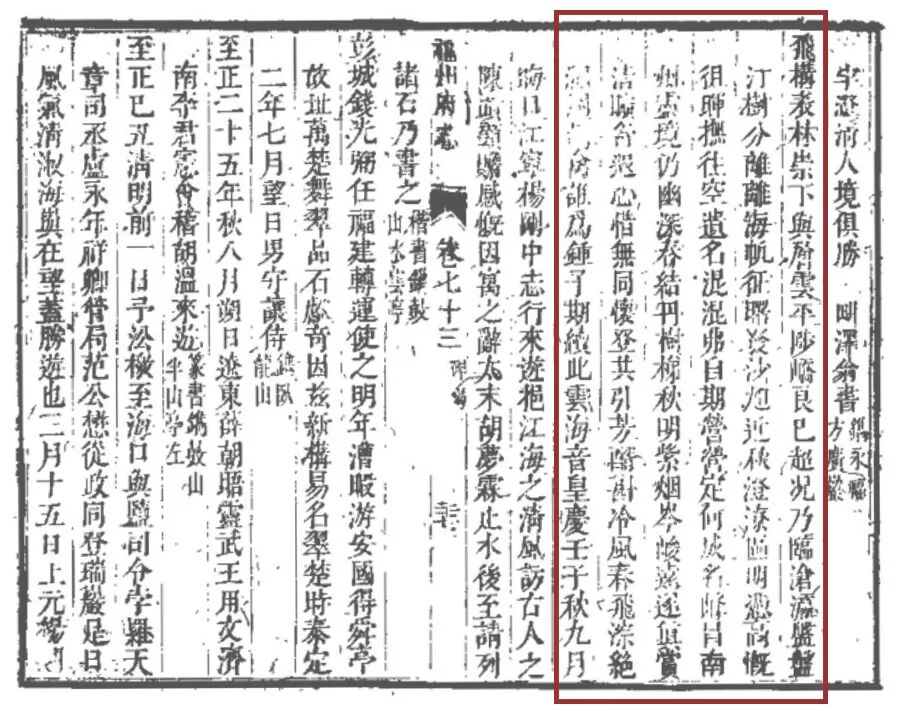 宇澄清人境俱勝 澤翁書 鐫永福
方廣巖
飛構表林崇下與脩雲平陟嶠良已超况乃臨滄瀛盤盤
汀樹分離離海帆征曙發沙旭近秋澄凉區明憑高慨
徂暉撫往空遺名混混弗自期營營定何成名峰甘南
州靈境仍幽深春結丹樹棉秋明紫烟岑峻遠遂真賞
清曠合遐心惜無同懷登共引芳醪斟冷風奏飛淙絶
誰爲鍾子期續此雲海音皇慶壬子秋九月
海口江寧楊剛中志行來遊挹江海之清風訪古人之
陳迹登臨感慨因寓之辭太末胡夢霖止水後至請列
福州府志 卷七十三 碑碣
諸石乃書之 楷書鐫鼓
山水雲亭
彭城錢光弼任福建轉運使之明年漕暇游安國得舜亭
故址萬楚舞翠品石獻奇因茲新構易名翠楚時泰定
二年七月望日男守讓侍 鐫臥
龍山
至正二十五年秋八月朔日遼東薛朝晤靈武王用文濟
南李君寔會稽胡溫來遊 篆書鐫鼓山
半山亭左
至正己丑清明前一日予訟檄至海口與鹽司令孛羅天
章司丞盧永年祥卿符局范公懋從政同登瑞巖是日
風氣清淑海與在望蓋勝遊也三月十五日上元楊